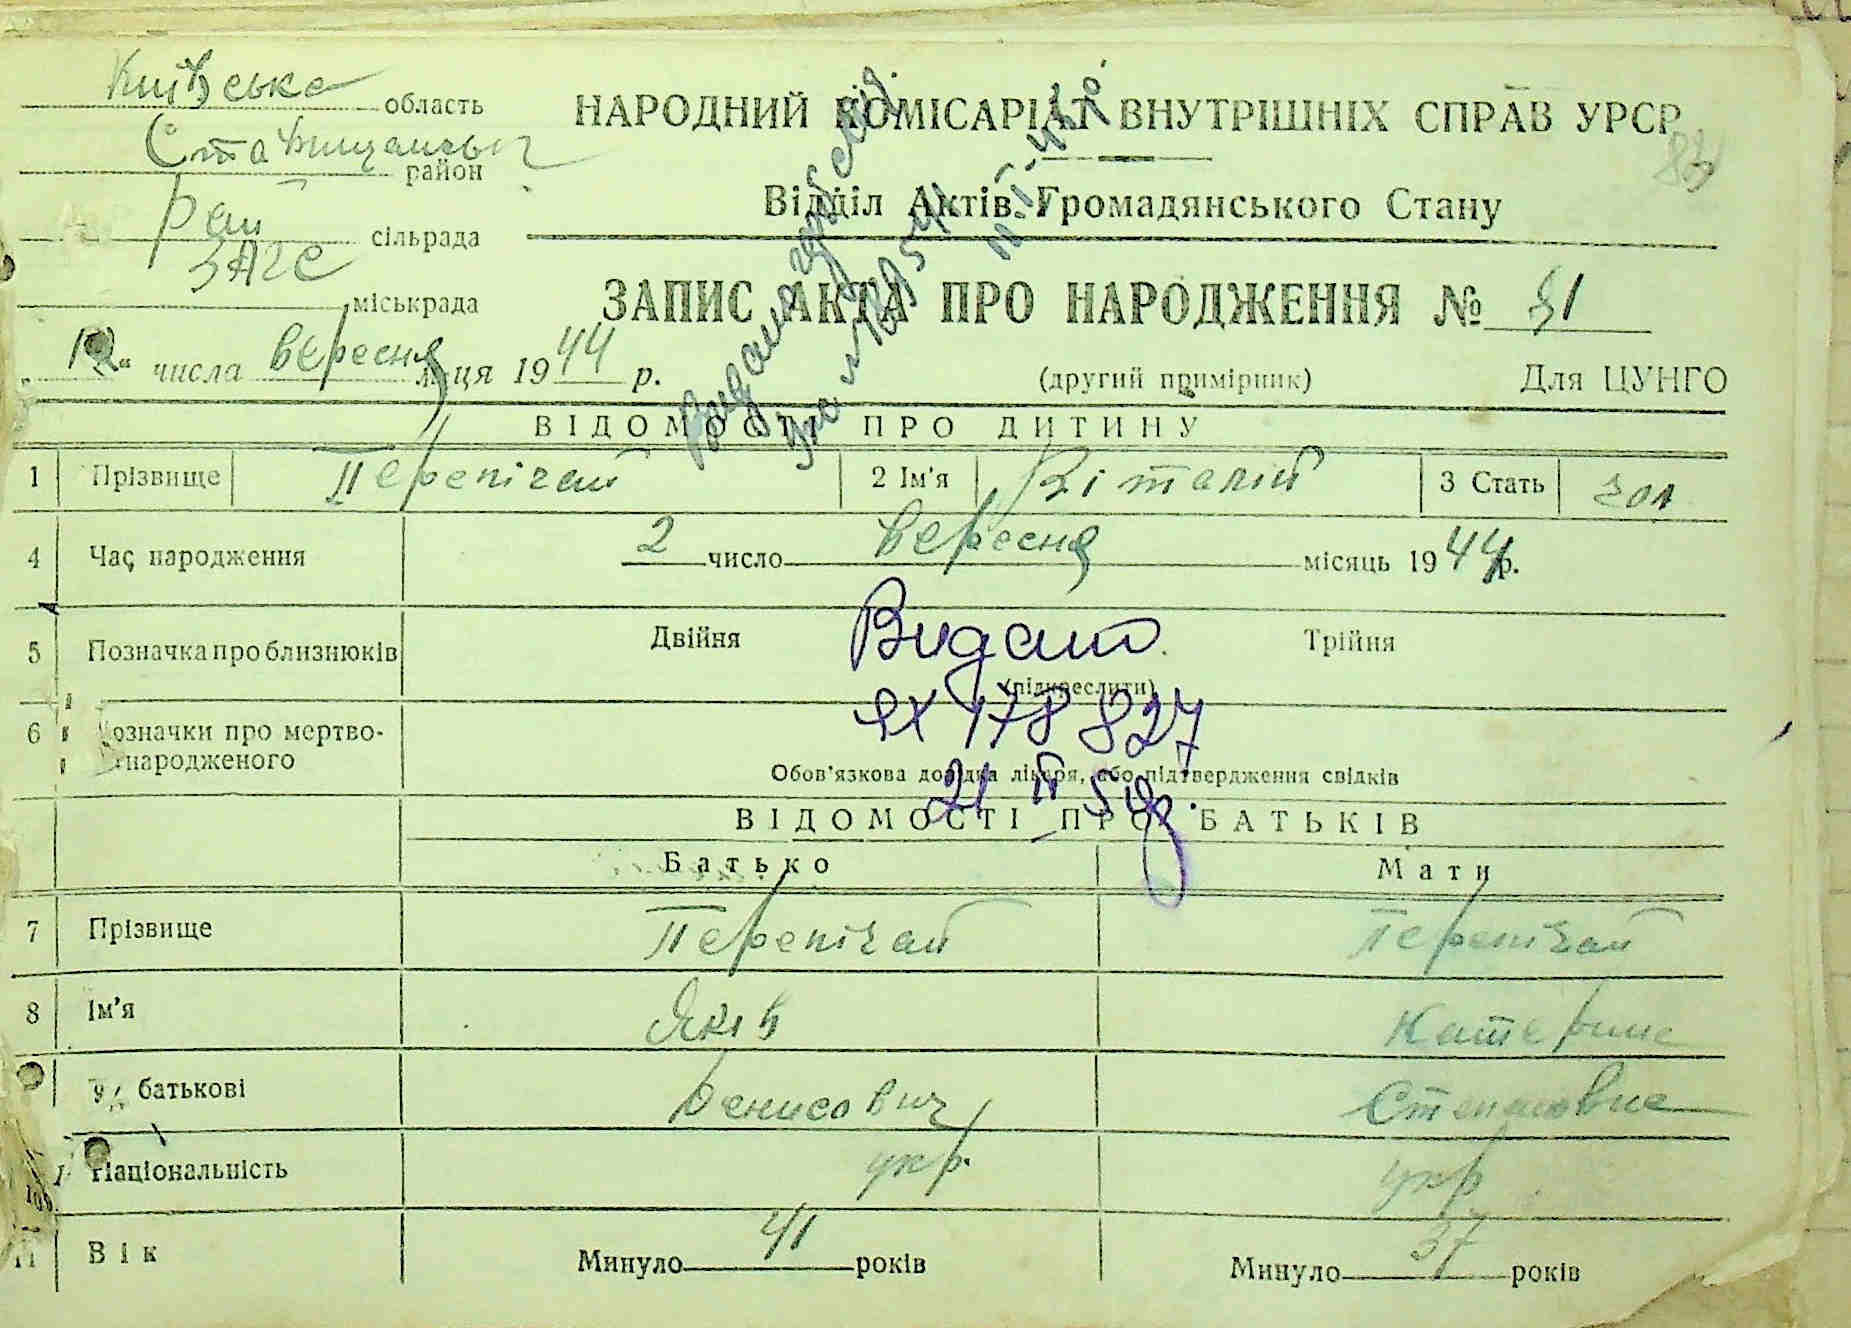 Київська область
Ставищанськ район
Рай сільрада
ЗАГС
міськрада
НАРОДНИЙ КОМІСАРІАТ ВНУТРІШНІХ СПРАВ УРСР
Відділ Актів Громадянського Стану
ЗАПИС АКТА ПРО НАРОДЖЕННЯ № 31
"12" числа вересня м-ця 1944 р.
(другий примірник) Для ЦУНГО
ВІДОМОСТІ ПРО ДИТИНУ
1 Прізвище Перепічай 2 Ім'я Віталій 3 Стать чол
4 Час народження 2 число вересня місяць 1944 р.
5 Позначка про близнюків Двійня Трійня
(підкреслити)
Видано
178827
21 IV
6 Позначки про мертво-
народженого
Обов'язкова довідка лікаря, або підтвердження свідків
ВІДОМОСТІ ПРО БАТЬКІВ
Батько Мати
7 Прізвище Перепічай Перепічай
8 Ім'я Яків Катерина
9 батькові Денисович Степановна
Національність укр. укр
11 Вік Минуло 41 років Минуло 37 років